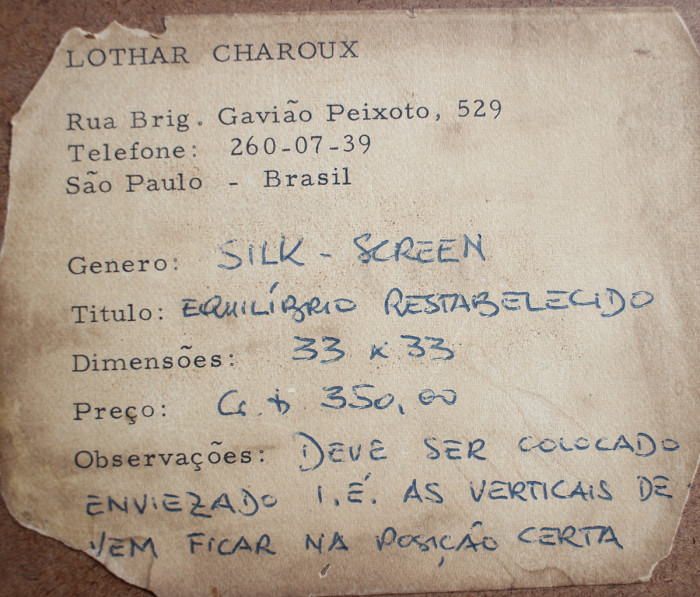 LOTHAR CHAROUX
Rua Brig. Gavião Peixoto, 529
Telefone: 260-07-39
São Paulo - Brasil
Genero: SILK - SCREEN
Titulo: EQUILÍBRIO RESTABELECIDO
Dimensões: 33 x 33
Preço: Cr.$ 350,00
Observações: DEVE SER COLOCADO
ENVIEZADO I.É. AS VERTICAIS DE-
VEM FICAR NA POSIÇÃO CERTA